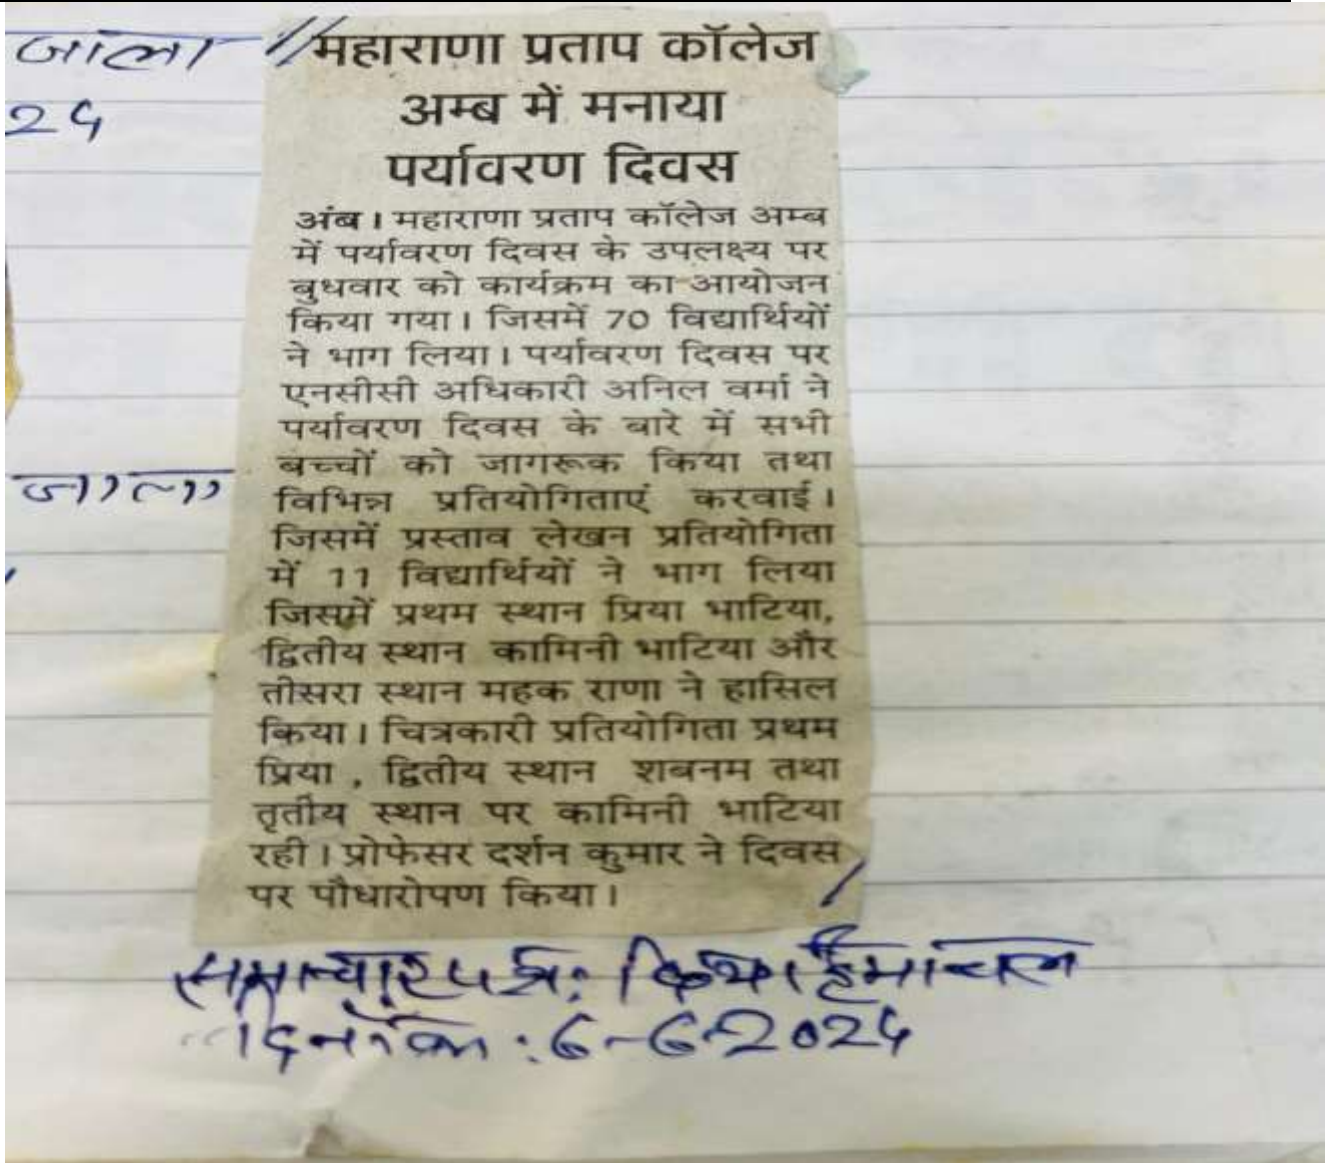 जाला //
24
महाराणा प्रताप कॉलेज
अम्ब में मनाया
पर्यावरण दिवस
अंब। महाराणा प्रताप कॉलेज अम्ब
में पर्यावरण दिवस के उपलक्ष्य पर
बुधवार को कार्यक्रम का आयोजन
किया गया। जिसमें 70 विद्यार्थियों
ने भाग लिया। पर्यावरण दिवस पर
एनसीसी अधिकारी अनिल वर्मा ने
पर्यावरण दिवस के बारे में सभी
बच्चों को जागरूक किया तथा
विभिन्न प्रतियोगिताएं करवाई।
जिसमें प्रस्ताव लेखन प्रतियोगिता
में 11 विद्यार्थियों ने भाग लिया
जिसमें प्रथम स्थान प्रिया भाटिया,
द्वितीय स्थान कामिनी भाटिया और
तीसरा स्थान महक राणा ने हासिल
किया। चित्रकारी प्रतियोगिता प्रथम
प्रिया , द्वितीय स्थान शबनम तथा
तृतीय स्थान पर कामिनी भाटिया
रही। प्रोफेसर दर्शन कुमार ने दिवस
पर पौधारोपण किया।
जाला
समाचार पत्र: हिमाचल
दिनाँक : 6-6-2024